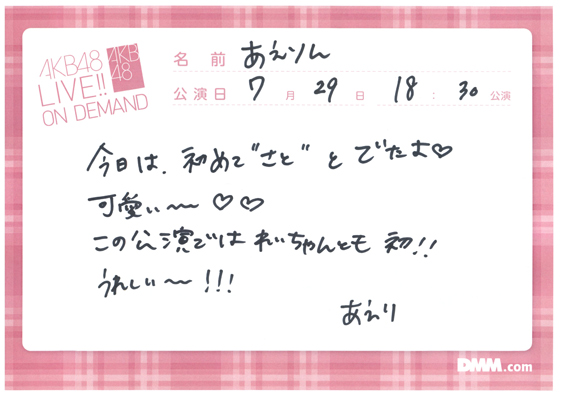 AKB48
LIVE!!
ON DEMAND
AKB
48
名 前 あえりん
公演日 7 月 29 日 18 : 30 公演
今日は、初めて"さと"とでたよ♡
可愛い〜♡♡
この公演ではれいちゃんとも初!!
うれしい〜!!!
あえり
DMM.com